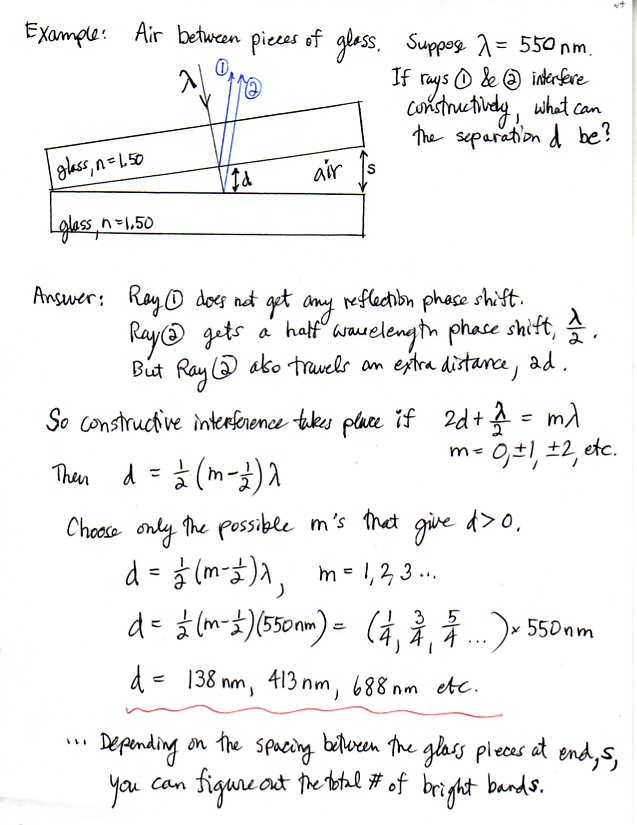 Example: Air between pieces of glass. Suppose λ = 550 nm.
If rays ① & ② interfere
constructively, what can
the separation d be?
λ
①
②
glass, n=1.50
d
air
s
glass, n=1.50
Answer: Ray ① does not get any reflection phase shift.
Ray ② gets a half wavelength phase shift, λ/2.
But Ray ② also travels an extra distance, 2d.
So constructive interference takes place if 2d + λ/2 = mλ
m = 0, ±1, ±2, etc.
Then d = 1/2 (m - 1/2) λ
Choose only the possible m's that give d > 0.
d = 1/2 (m - 1/2) λ, m = 1, 2, 3 ...
d = 1/2 (m - 1/2)(550 nm) = (1/4, 3/4, 5/4 ...) × 550 nm
d = 138 nm, 413 nm, 688 nm etc.
... Depending on the spacing between the glass pieces at end, s,
you can figure out the total # of bright bands.